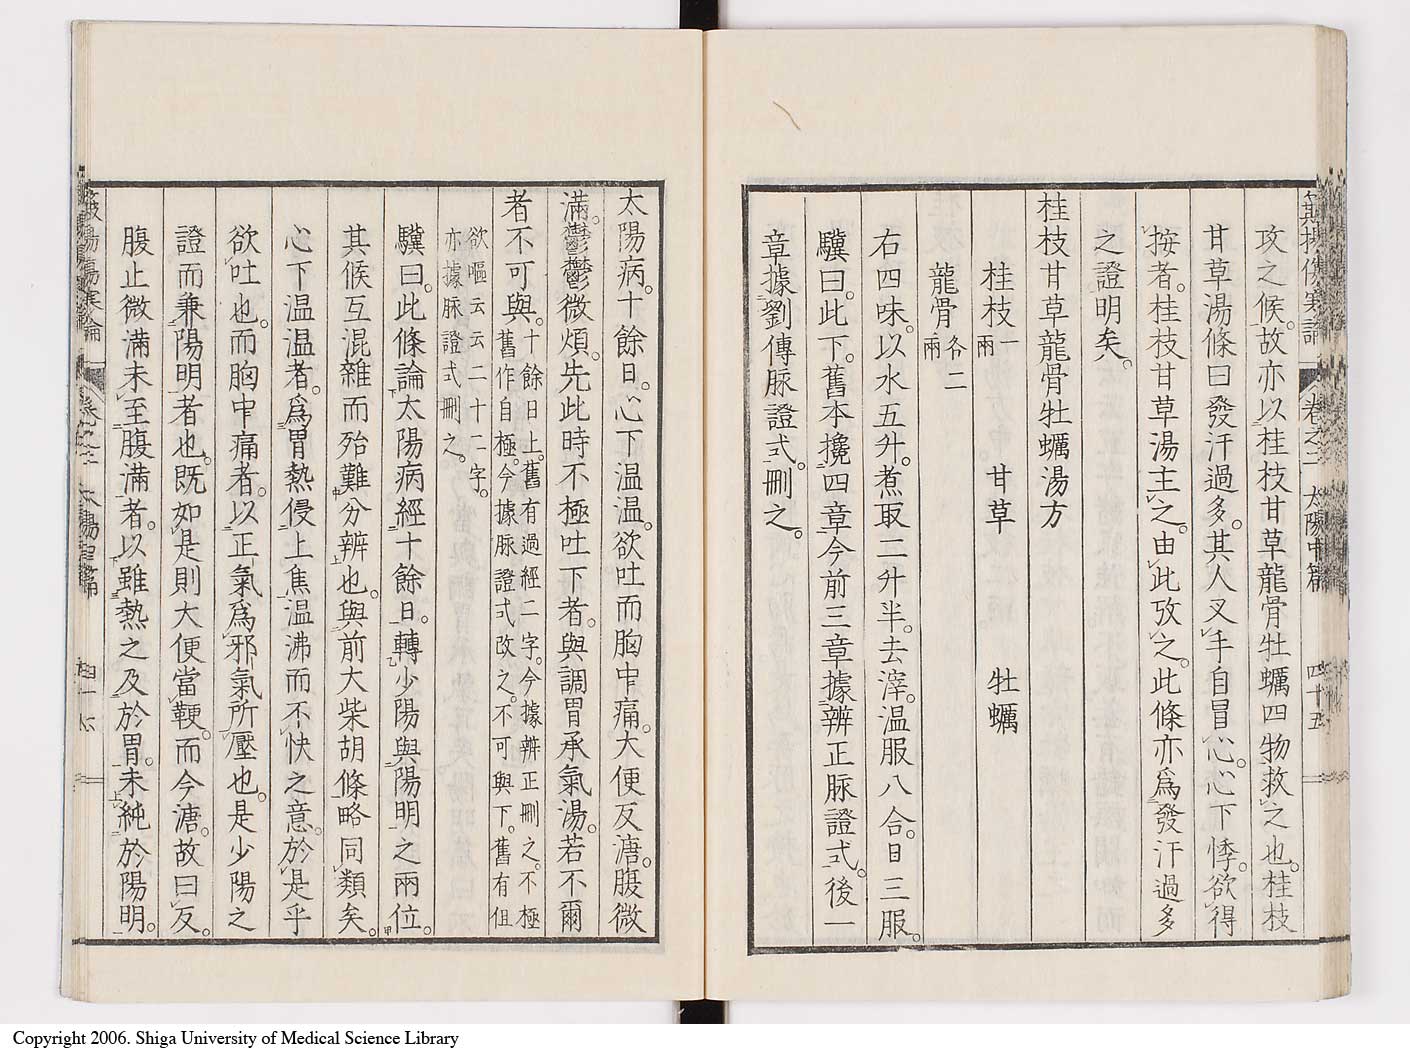 攻之候。故亦以桂枝甘草龍骨牡蠣四物救之也。桂枝
甘草湯條曰發汗過多。其人叉手自冒心。心下悸。欲得
按者。桂枝甘草湯主之。由此攷之。此條亦爲發汗過多
之證明矣。
桂枝甘草龍骨牡蠣湯方
桂枝一兩 甘草 牡蠣
龍骨各二兩
右四味。以水五升。煮取二升半。去滓。温服八合。日三服。
驥曰。此下。舊本攙四章今前三章據辨正脉證式。後一
章據劉傳脉證式。刪之。
太陽中篇
四十五
卷之二
太陽病。十餘日。心下温温。欲吐而胸中痛。大便反溏。腹微
滿。鬱鬱微煩。先此時不極吐下者。與調胃承氣湯。若不爾
者不可與。十餘日上。舊有過經二字。今據辨正刪之。不極
舊作自極。今據脉證式改之。不可與下。舊有但
欲嘔云云二十一字。
亦據脉證式刪之。
驥曰。此條論太陽病經十餘日。轉少陽與陽明之兩位。
其候互混雜而殆難分辨也。與前大柴胡條略同類矣。
心下温温者。爲胃熱侵上焦温沸而不快之意。於是乎
欲吐也。而胸中痛者。以正氣爲邪氣所壓也。是少陽之
證而兼陽明者也。既如是則大便當鞕。而今溏。故曰反。
腹止微滿未至腹滿者。以雖熱之及於胃。未純於陽明。